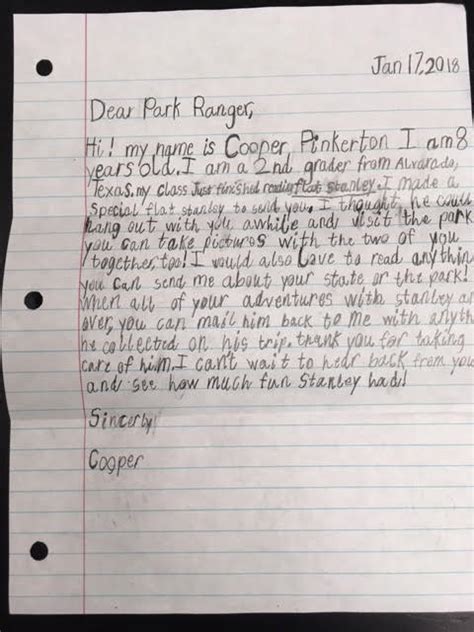 Jan 17, 2018
Dear Park Ranger,
Hi! my name is Cooper Pinkerton I am 8
years old. I am a 2nd grader from Alvarado,
Texas. my class Just finished reading flat stanley. I made a
special flat stanley to send you. I thought he could
hang out with you awhile and visit the park
you can take pictures with the two of you
together, too! I would also Love to read anything
you can send me about your state or the park!
when all of your adventures with stanley a
over, you can mail him back to me with anyth
he collected on his trip. thank you for taking
care of him. I can't wait to hear back from you
and see how much fun Stanley had!
Sincerly
Cooper